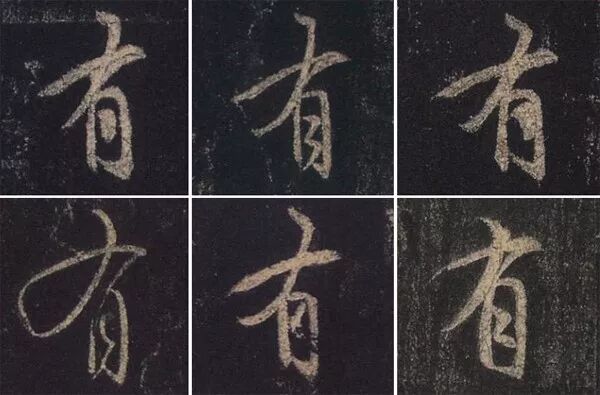 有有有
有有有